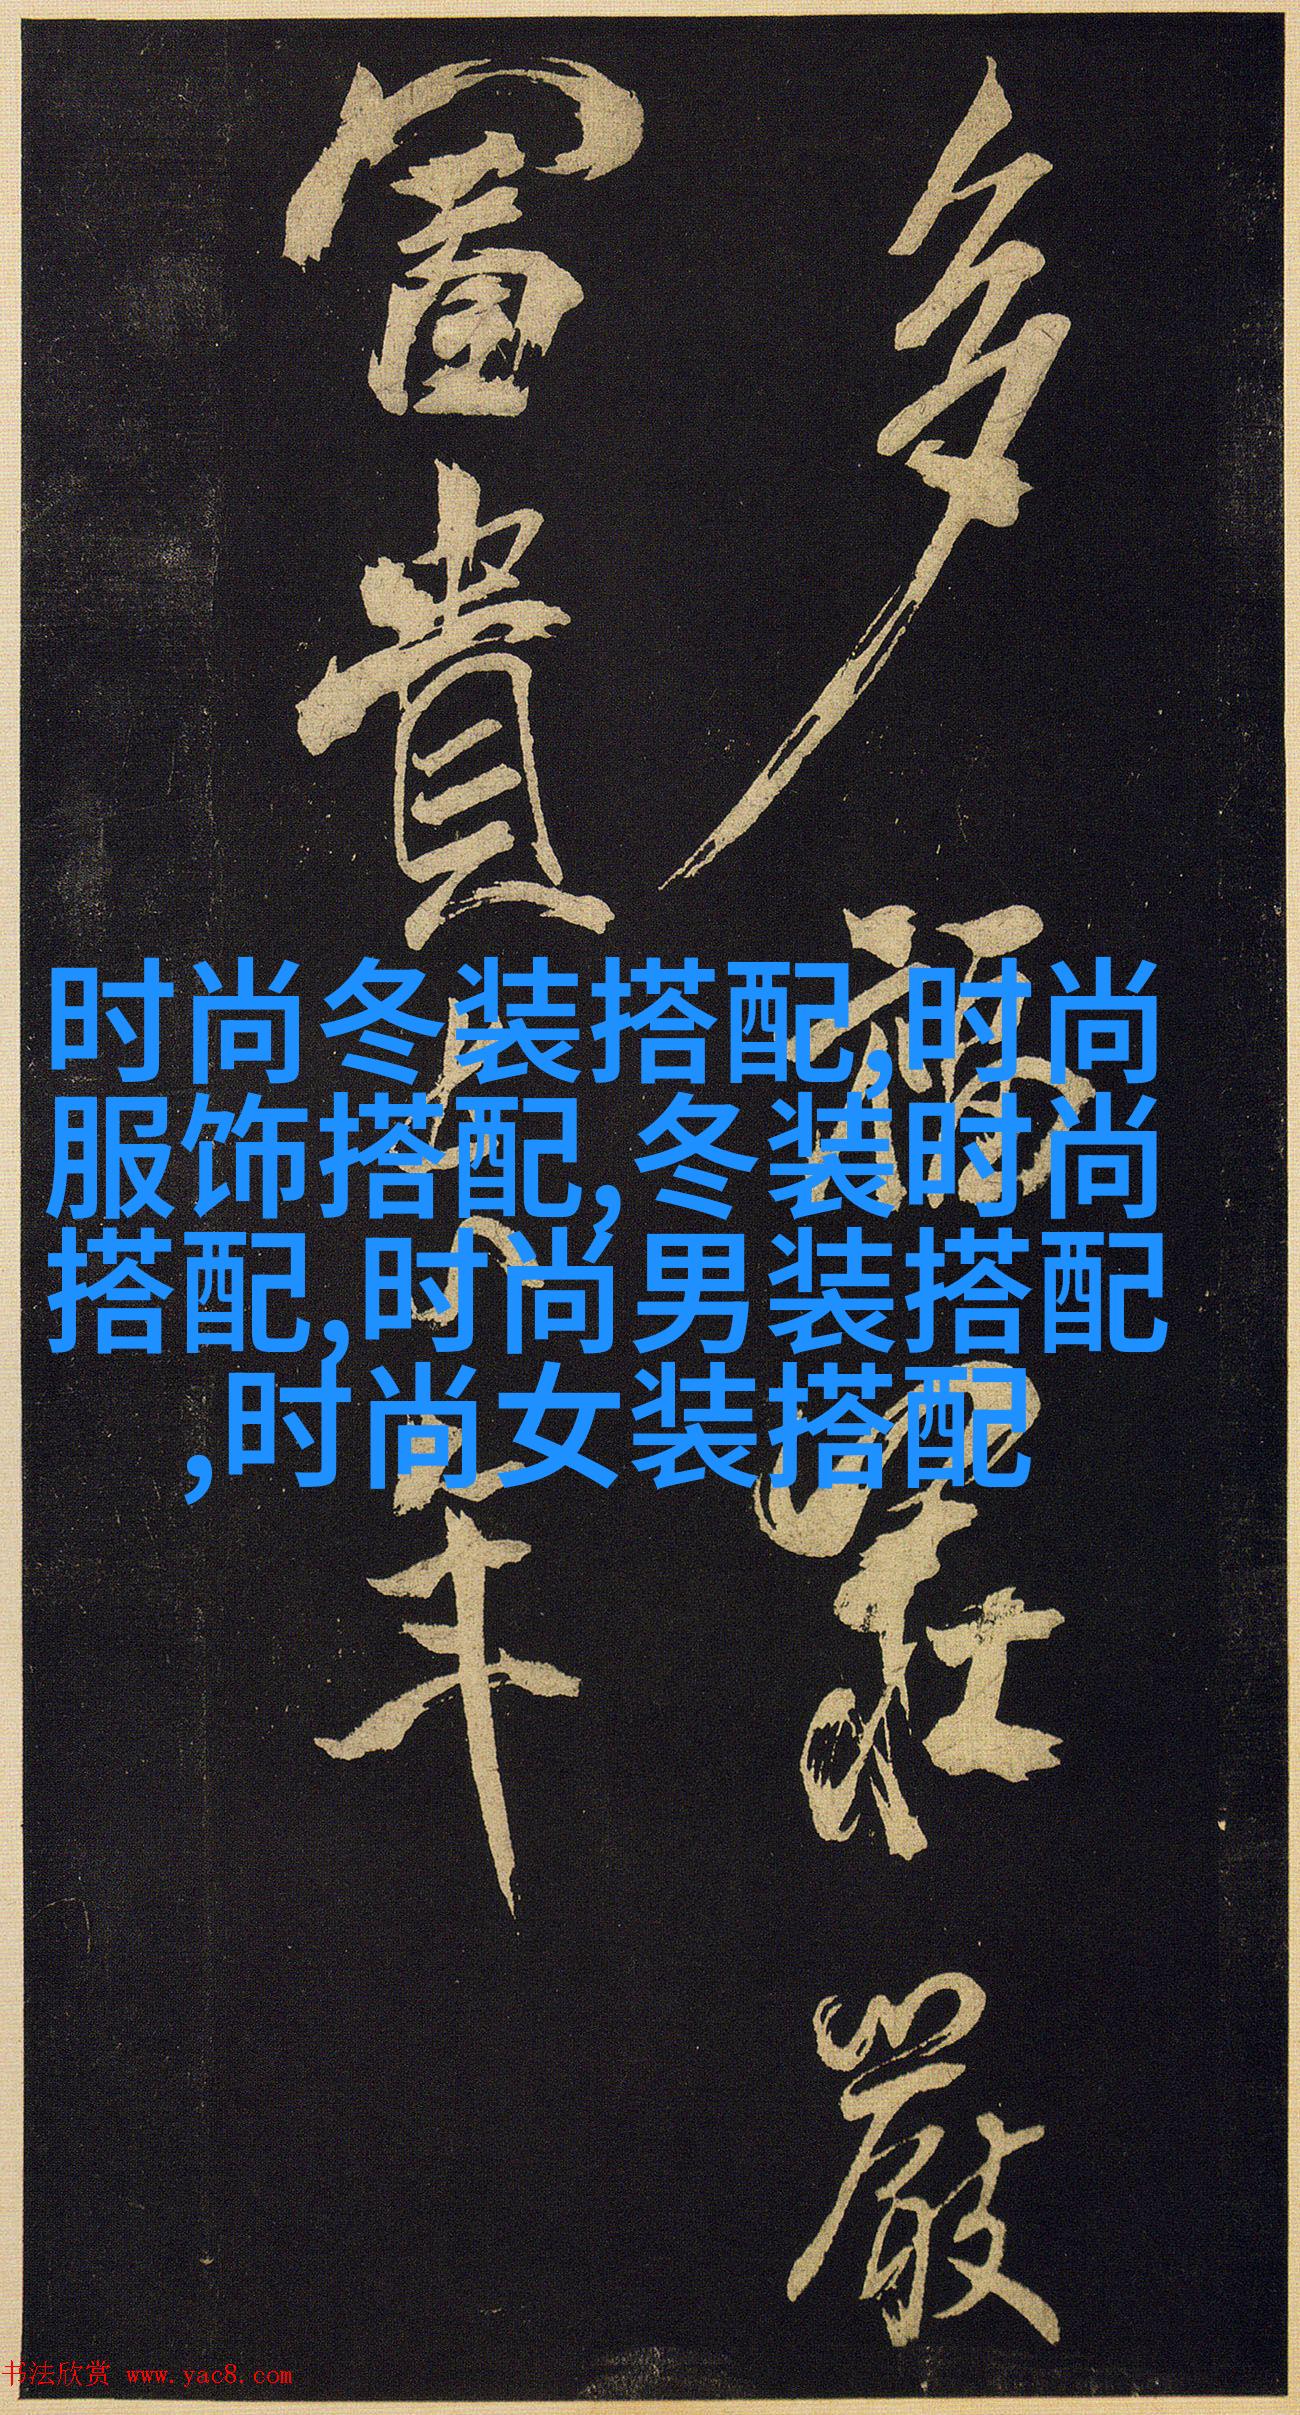 多福罪莊嚴
富貴
年
时尚冬装搭配,时尚
服饰搭配,冬装时尚
搭配,时尚男装搭配
,时尚女装搭配
书法欣赏 www.yac8.com